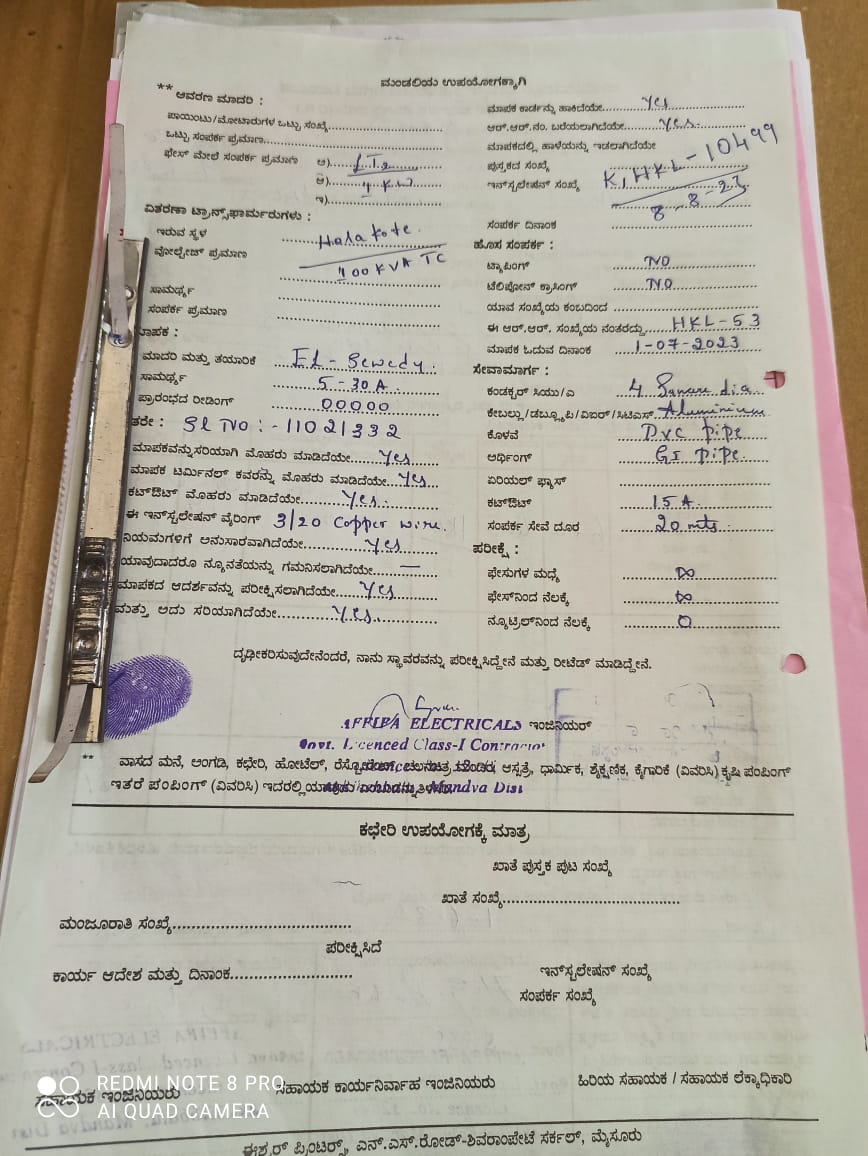 ಮಂಡಲಿಯ ಉಪಯೋಗಕ್ಕಾಗಿ
** ಆವರಣ ಮಾದರಿ :
ಪಾಯಿಂಟು/ಮೋಟಾರುಗಳ ಒಟ್ಟು ಸಂಖ್ಯೆ
ಒಟ್ಟು ಸಂಪರ್ಕ ಪ್ರಮಾಣ
ಫೇಸ್ ಮೇಲೆ ಸಂಪರ್ಕ ಪ್ರಮಾಣ ಅ)
ಆ) KW
ಇ)
ವಿತರಣಾ ಟ್ರಾನ್ಸ್‌ಫಾರ್ಮರುಗಳು :
ಇರುವ ಸ್ಥಳ Halakote.
ವೋಲ್ಟೇಜ್ ಪ್ರಮಾಣ 100 KVA TC
ಸಾಮರ್ಥ್ಯ
ಸಂಪರ್ಕ ಪ್ರಮಾಣ
ಮಾಪಕ :
ಮಾದರಿ ಮತ್ತು ತಯಾರಿಕೆ EL - Sewedy.
ಸಾಮರ್ಥ್ಯ 5-30 A.
ಪ್ರಾರಂಭದ ರೀಡಿಂಗ್ 00000
ತರೇ : Sl No :- 11021332
ಮಾಪಕವನ್ನು ಸರಿಯಾಗಿ ಮೊಹರು ಮಾಡಿದೆಯೇ Yes
ಮಾಪಕ ಟರ್ಮಿನಲ್ ಕವರನ್ನು ಮೊಹರು ಮಾಡಿದೆಯೇ Yes
ಕಟ್‌ಔಟ್ ಮೊಹರು ಮಾಡಿದೆಯೇ Yes.
ಈ ಇನ್‌ಸ್ಟಲೇಷನ್ ವೈರಿಂಗ್ 3/20 Copper wire.
ನಿಯಮಗಳಿಗೆ ಅನುಸಾರವಾಗಿದೆಯೇ Yes
ಯಾವುದಾದರೂ ನ್ಯೂನತೆಯನ್ನು ಗಮನಿಸಲಾಗಿದೆಯೇ —
ಮಾಪಕದ ಆದರ್ಶವನ್ನು ಪರೀಕ್ಷಿಸಲಾಗಿದೆಯೇ Yes
ಮತ್ತು ಅದು ಸರಿಯಾಗಿದೆಯೇ Yes
ಮಾಪಕ ಕಾರ್ಡನ್ನು ಹಾಕಿದೆಯೇ Yes
ಆರ್.ಆರ್.ನಂ. ಬರೆಯಲಾಗಿದೆಯೇ Yes.
ಮಾಪಕದಲ್ಲಿ ಹಾಳೆಯನ್ನು ಇಡಲಾಗಿದೆಯೇ
ಪುಸ್ತಕದ ಸಂಖ್ಯೆ
ಇನ್‌ಸ್ಟಲೇಷನ್ ಸಂಖ್ಯೆ KIHKL-10499
8-8-23
ಸಂಪರ್ಕ ದಿನಾಂಕ
ಹೊಸ ಸಂಪರ್ಕ :
ಟ್ಯಾಪಿಂಗ್ NO
ಟೆಲಿಫೋನ್ ಕ್ರಾಸಿಂಗ್ NO
ಯಾವ ಸಂಖ್ಯೆಯ ಕಂಬದಿಂದ
ಈ ಆರ್.ಆರ್. ಸಂಖ್ಯೆಯ ನಂತರದ್ದು HKL-53
ಮಾಪಕ ಓದುವ ದಿನಾಂಕ 1-07-2023
ಸೇವಾಮಾರ್ಗ :
ಕಂಡಕ್ಟರ್ ಸಿಯು/ಎ 4 Square dia
ಕೇಬಲ್ಲು/ಡಬ್ಲ್ಯೂಪಿ/ಏಐಆರ್/ಸಿಟಿಎಸ್. Aluminium
ಕೊಳವೆ PVC pipe
ಅರ್ಥಿಂಗ್ GI pipe.
ಏರಿಯಲ್ ಫ್ಯೂಸ್
ಕಟ್‌ಔಟ್ 15 A.
ಸಂಪರ್ಕ ಸೇವೆ ದೂರ 20 mts.
ಪರೀಕ್ಷೆ :
ಫೇಸುಗಳ ಮಧ್ಯೆ ∞
ಫೇಸ್‌ನಿಂದ ನೆಲಕ್ಕೆ ∞
ನ್ಯೂಟ್ರಲ್‌ನಿಂದ ನೆಲಕ್ಕೆ 0
ದೃಢೀಕರಿಸುವುದೇನೆಂದರೆ, ನಾನು ಸ್ಥಾವರವನ್ನು ಪರೀಕ್ಷಿಸಿದ್ದೇನೆ ಮತ್ತು ರೀಟೆಡ್ ಮಾಡಿದ್ದೇನೆ.
ELECTRICALS ಇಂಜಿನಿಯರ್
Govt. Licenced Class-I Contractor
** ವಾಸದ ಮನೆ, ಅಂಗಡಿ, ಕಛೇರಿ, ಹೋಟೆಲ್, ಆಸ್ಪತ್ರೆ, ಧಾರ್ಮಿಕ, ಶೈಕ್ಷಣಿಕ, ಕೈಗಾರಿಕೆ (ವಿವರಿಸಿ) ಕೃಷಿ ಪಂಪಿಂಗ್
ಇತರೆ ಪಂಪಿಂಗ್ (ವಿವರಿಸಿ) Mandya Dist
ಕಛೇರಿ ಉಪಯೋಗಕ್ಕೆ ಮಾತ್ರ
ಖಾತೆ ಪುಸ್ತಕ ಪುಟ ಸಂಖ್ಯೆ
ಖಾತೆ ಸಂಖ್ಯೆ
ಮಂಜೂರಾತಿ ಸಂಖ್ಯೆ
ಪರೀಕ್ಷಿಸಿದೆ
ಕಾರ್ಯ ಆದೇಶ ಮತ್ತು ದಿನಾಂಕ
ಇನ್‌ಸ್ಟಲೇಷನ್ ಸಂಖ್ಯೆ
ಸಂಪರ್ಕ ಸಂಖ್ಯೆ
ಸಹಾಯಕ ಇಂಜಿನಿಯರು
ಸಹಾಯಕ ಕಾರ್ಯನಿರ್ವಾಹ ಇಂಜಿನಿಯರು
ಹಿರಿಯ ಸಹಾಯಕ / ಸಹಾಯಕ ಲೆಕ್ಕಾಧಿಕಾರಿ
REDMI NOTE 8 PRO
AI QUAD CAMERA
ಈಶ್ವರ್ ಪ್ರಿಂಟರ್ಸ್, ಎನ್.ಎಸ್.ರೋಡ್-ಶಿವರಾಂಪೇಟೆ ಸರ್ಕಲ್, ಮೈಸೂರು